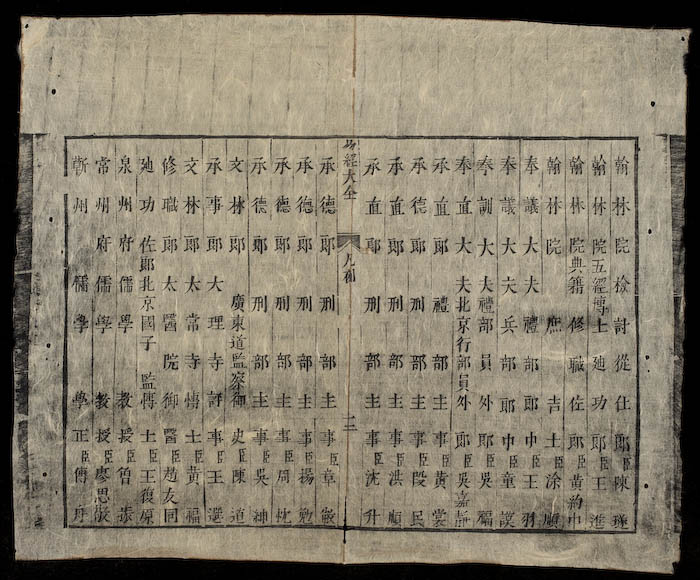 翰林院檢討從仕郎臣陳璲
翰林院五經博士迪功郎臣王進
翰林院典籍修職佐郎臣黃約中
翰林院庶吉士臣涂順
奉議大夫禮部郎中臣王羽
奉議大夫兵部郎中臣童謨
奉訓大夫禮部員外郎臣吳福
奉直大夫北京行部員外郎臣吳嘉靜
承直郎禮部主事臣黃裳
承德郎刑部主事臣段民
承直郎刑部主事臣洪順
承直郎刑部主事臣沈升
經大全 凡例 二
承德郎刑部主事臣章敞
承德郎刑部主事臣楊勉
承德郎刑部主事臣周忱
承德郎刑部主事臣吳紳
文林郎廣東道監察御史臣陳道
承事郎大理寺評事臣王選
文林郎太常寺博士臣黃福
修職郎太醫院御醫臣趙友同
迪功佐郎北京國子監博士臣王復原
泉州府儒學教授臣曾
常州府儒學教授臣廖思敬
蘄州儒學學正臣傅舟